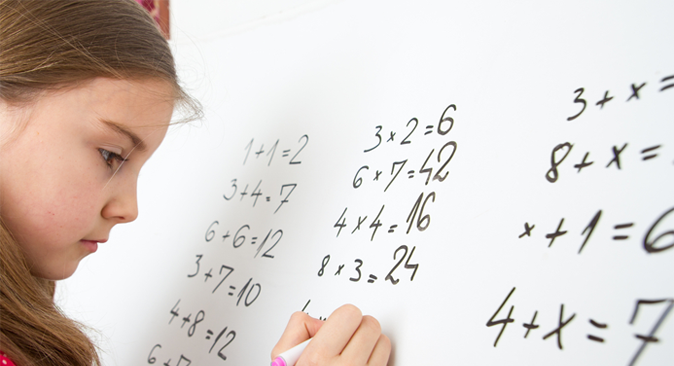 1+1=2
3+4=7
6+6=12
3+7=10
4+8=12
6+7=
3×2=6
6×7=42
4×4=16
8×3=24
3+x=
8+x=
x+1=6
4+x=7